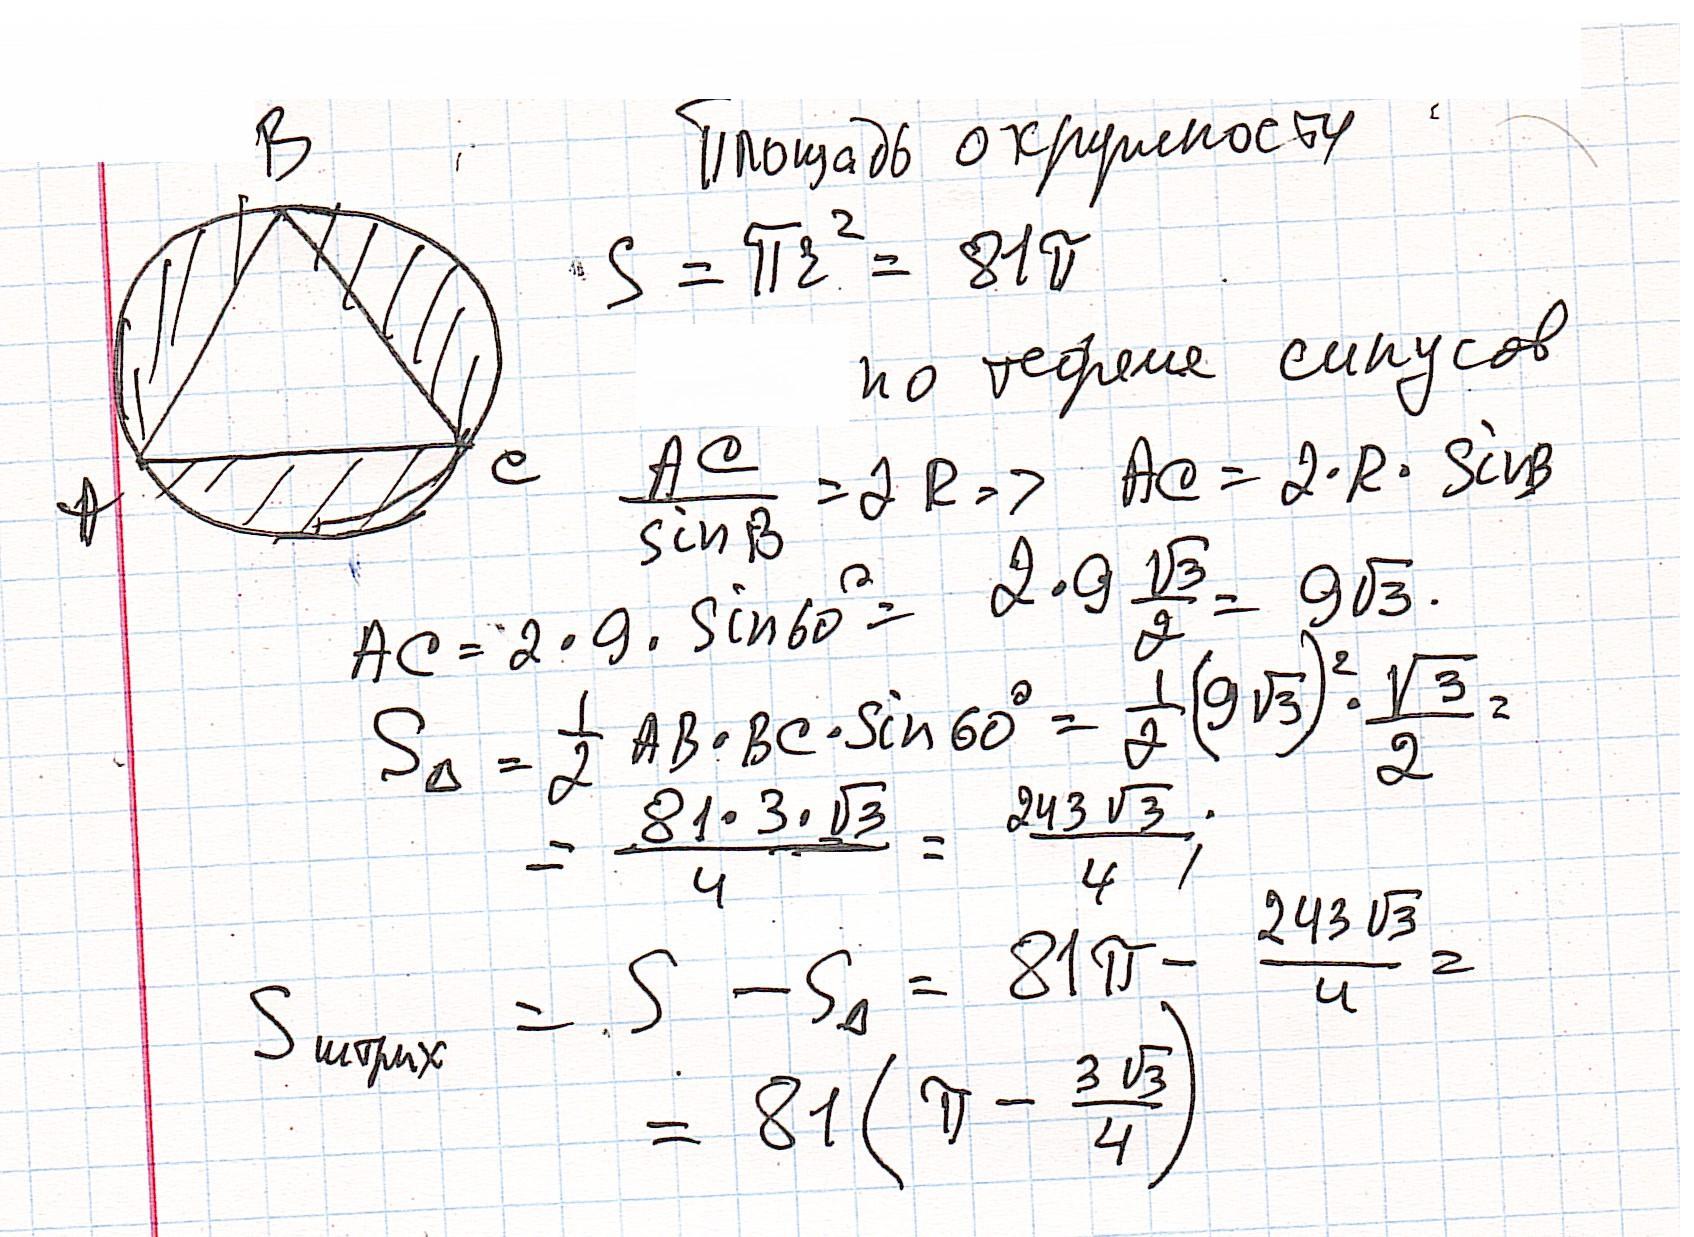 B
Площадь окружности
S = πr² = 81π
по теореме синусов
A
C
AC/sinB = 2R => AC = 2·R·SinB
AC = 2·9·Sin60° = 2·9 √3/2 = 9√3.
S△ = 1/2 AB·BC·Sin60° = 1/2 (9√3)²·√3/2 =
= 81·3·√3/4 = 243√3/4;
Sштрих = S − S△ = 81π − 243√3/4 =
= 81(π − 3√3/4)